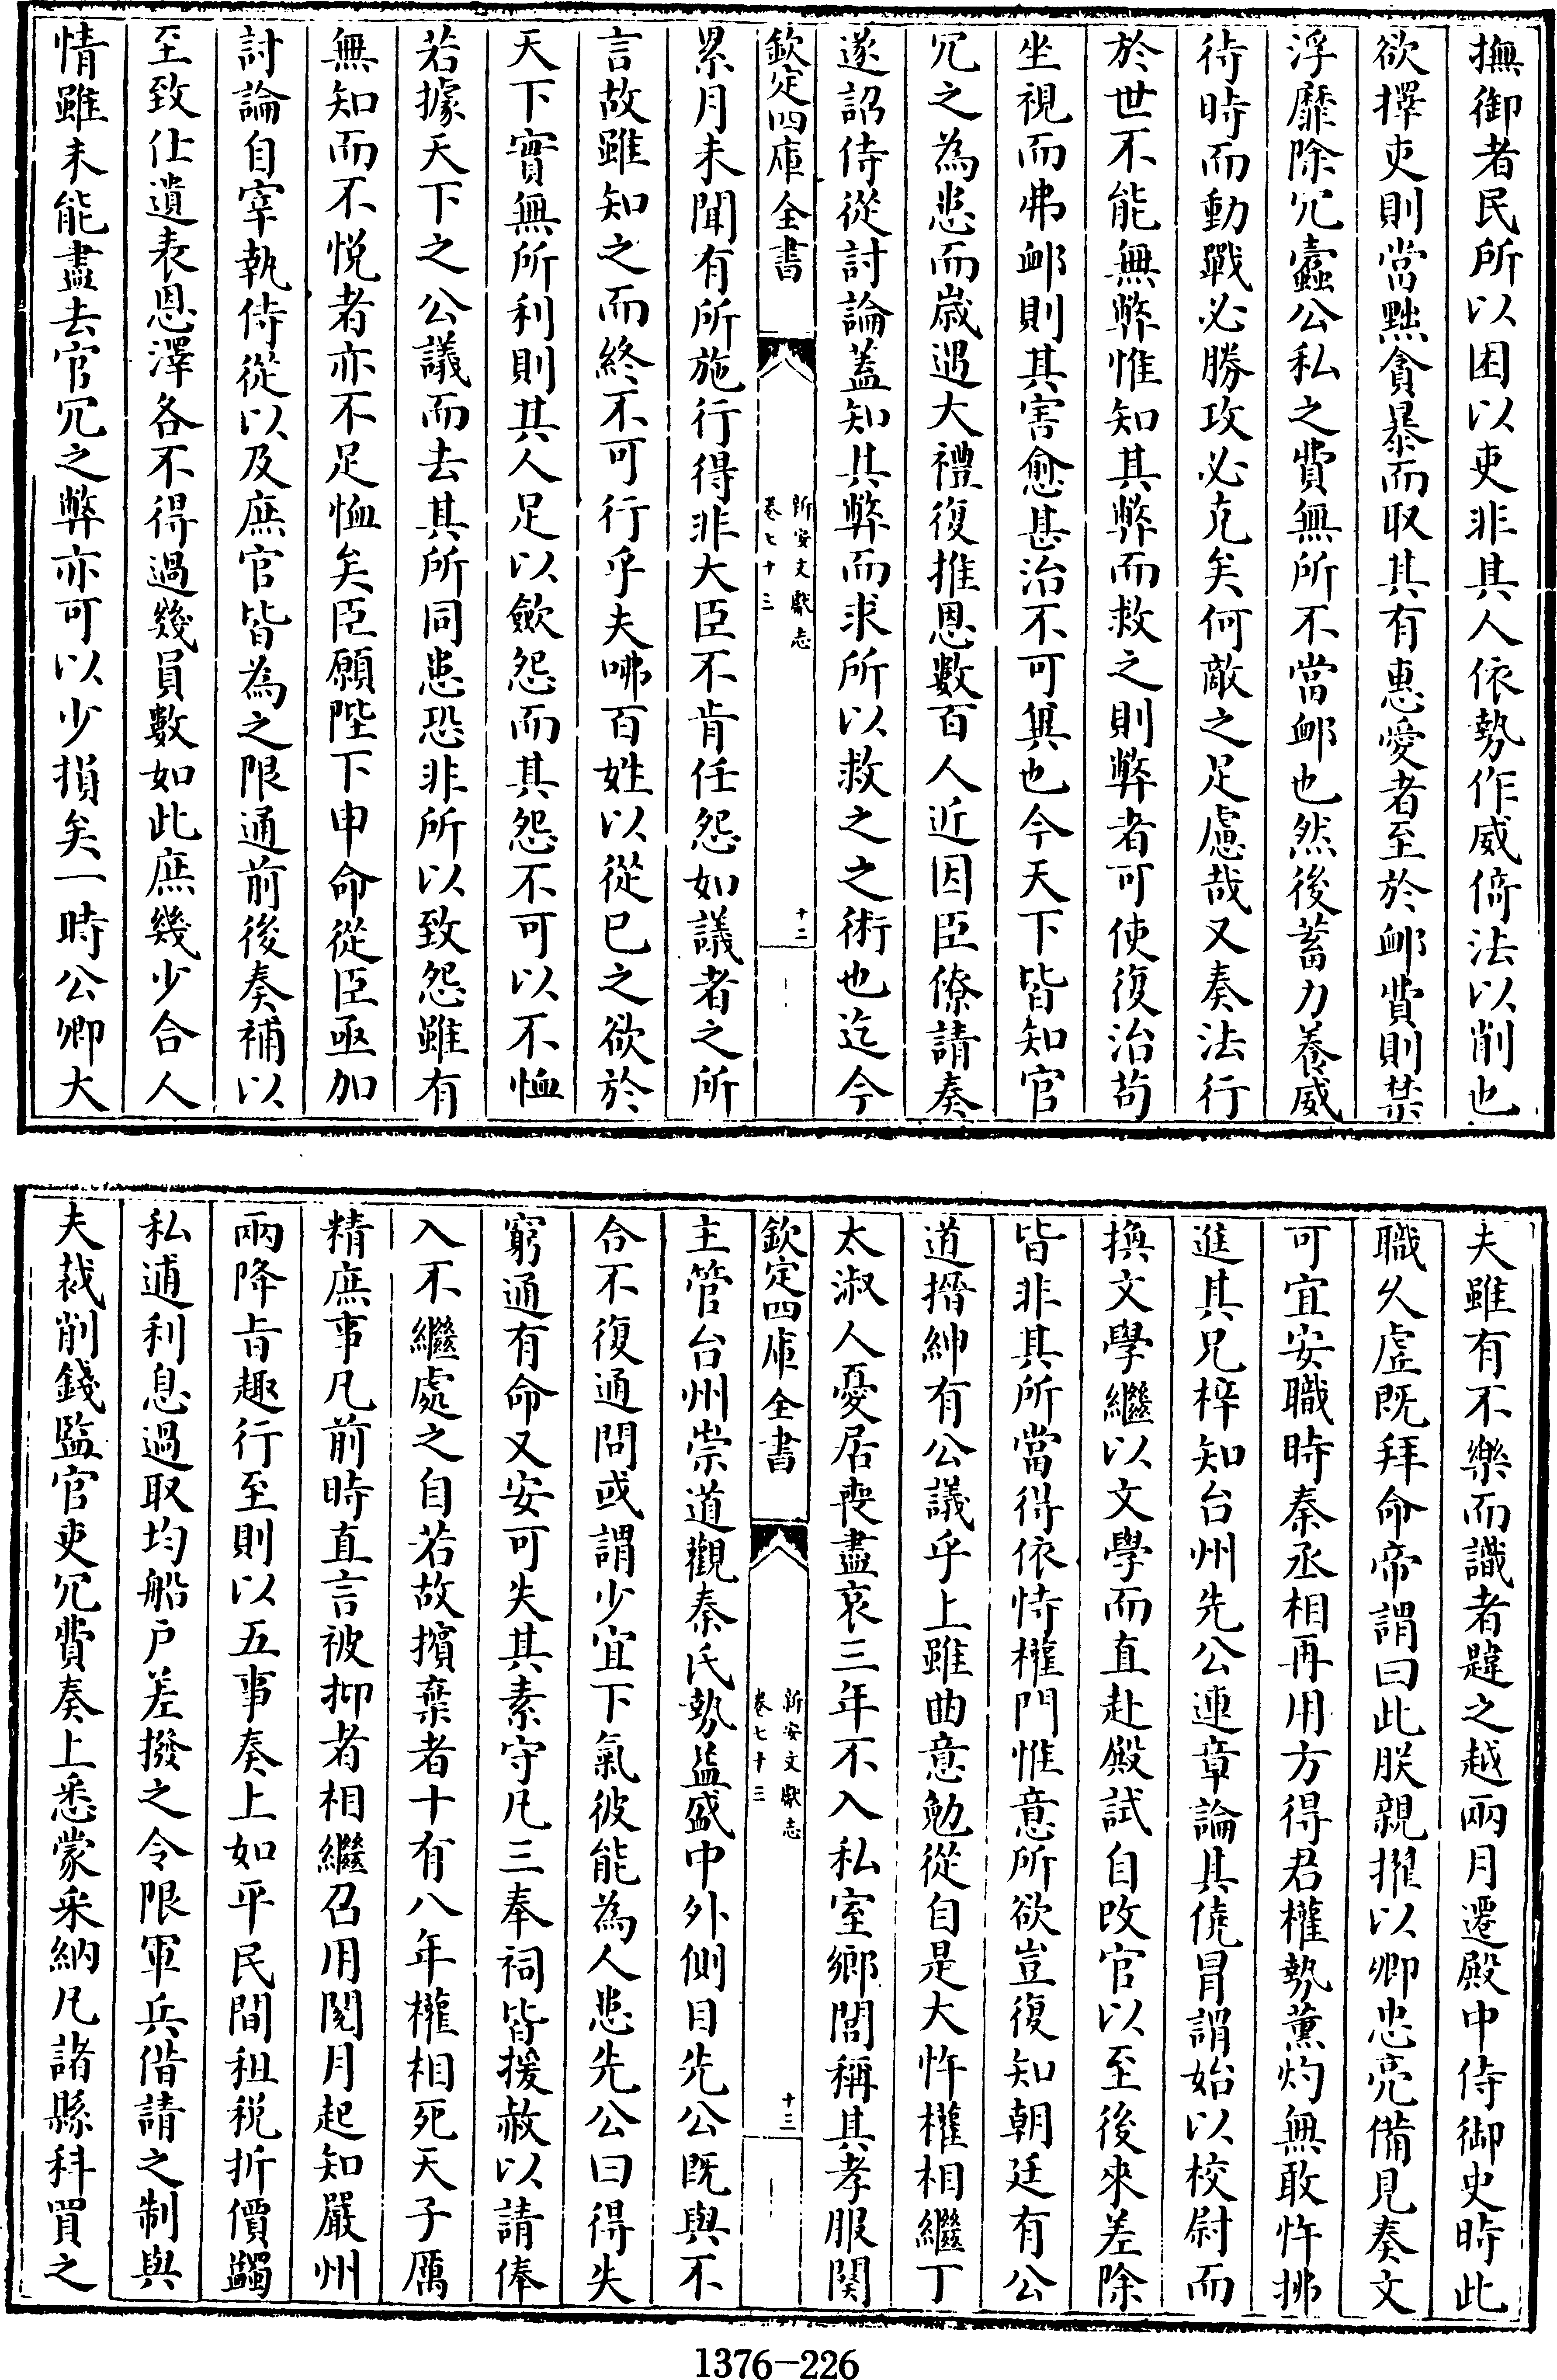 撫御者民所以困以吏非其人依勢作威倚法以削也
欲擇吏則當黜貪暴而取其有惠愛者至於卹費則禁
浮靡除冗蠹公私之費無所不當卹也然後蓄力養威
待時而動戰必勝攻必克矣何敵之足慮哉又奏法行
於世不能無弊惟知其弊而救之則弊者可使復治苟
坐視而弗卹則其害愈甚治不可兾也今天下皆知官
冗之為患而歲遇大禮復推恩數百人近因臣僚請奏
遂詔侍從討論蓋知其弊而求所以救之之術也迄今
欽定四庫全書
新安文獻志
卷七十三
十二
累月未聞有所施行得非大臣不肯任怨如議者之所
言故雖知之而終不可行乎夫咈百姓以從已之欲於
天下實無所利則其人足以歛怨而其怨不可以不恤
若據天下之公議而去其所同患恐非所以致怨雖有
無知而不悅者亦不足恤矣臣願陛下申命從臣亟加
討論自宰執侍從以及庶官皆為之限通前後奏補以
至致仕遺表恩澤各不得過幾員數如此庶幾少合人
情雖未能盡去官冗之弊亦可以少損矣一時公卿大
夫雖有不樂而識者韙之越兩月遷殿中侍御史時此
職乆虛既拜命帝謂曰此朕親擢以卿忠亮備見奏文
可宜安職時秦丞相再用方得君權勢薰灼無敢忤拂
進其兄梓知台州先公連章論其僥冒謂始以校尉而
換文學繼以文學而直赴殿試自改官以至後來差除
皆非其所當得依恃權門惟意所欲豈復知朝廷有公
道搢紳有公議乎上雖曲意勉從自是大忤權相繼丁
太淑人憂居喪盡哀三年不入私室鄉閭稱其孝服闋
欽定四庫全書
新安文獻志
卷七十三
十三
主管台州崇道觀秦氏勢益盛中外側目先公既與不
合不復通問或謂少宜下氣彼能為人患先公曰得失
窮通有命又安可失其素守凡三奉祠皆援赦以請俸
入不繼處之自若故擯棄者十有八年權相死天子厲
精庶事凡前時直言被抑者相繼召用閱月起知嚴州
兩降旨趣行至則以五事奏上如平民間租税折價蠲
私逋利息過取均船戸差撥之令限軍兵借請之制與
夫裁削錢監官吏冗費奏上悉蒙采納凡諸縣科買之
1376—226